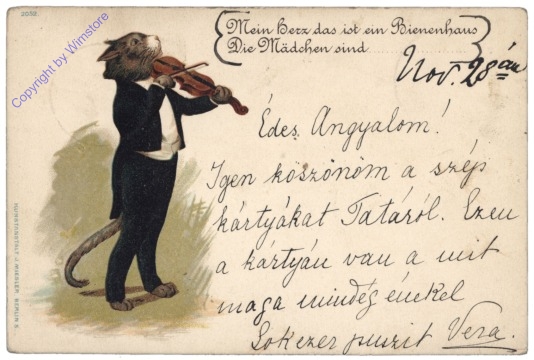 2052.
Mein Herz das ist ein Bienenhaus
Die Mädchen sind
Nov. 28án
Édes Angyalom!
Igen köszönöm a szép
kártyákat Tatáról. Ezen
a kártyán van a mit
maga mindég énekel
Sokezer puszit Vera.
KUNSTANSTALT J. MIESLER, BERLIN S.
Copyright by Wimstore